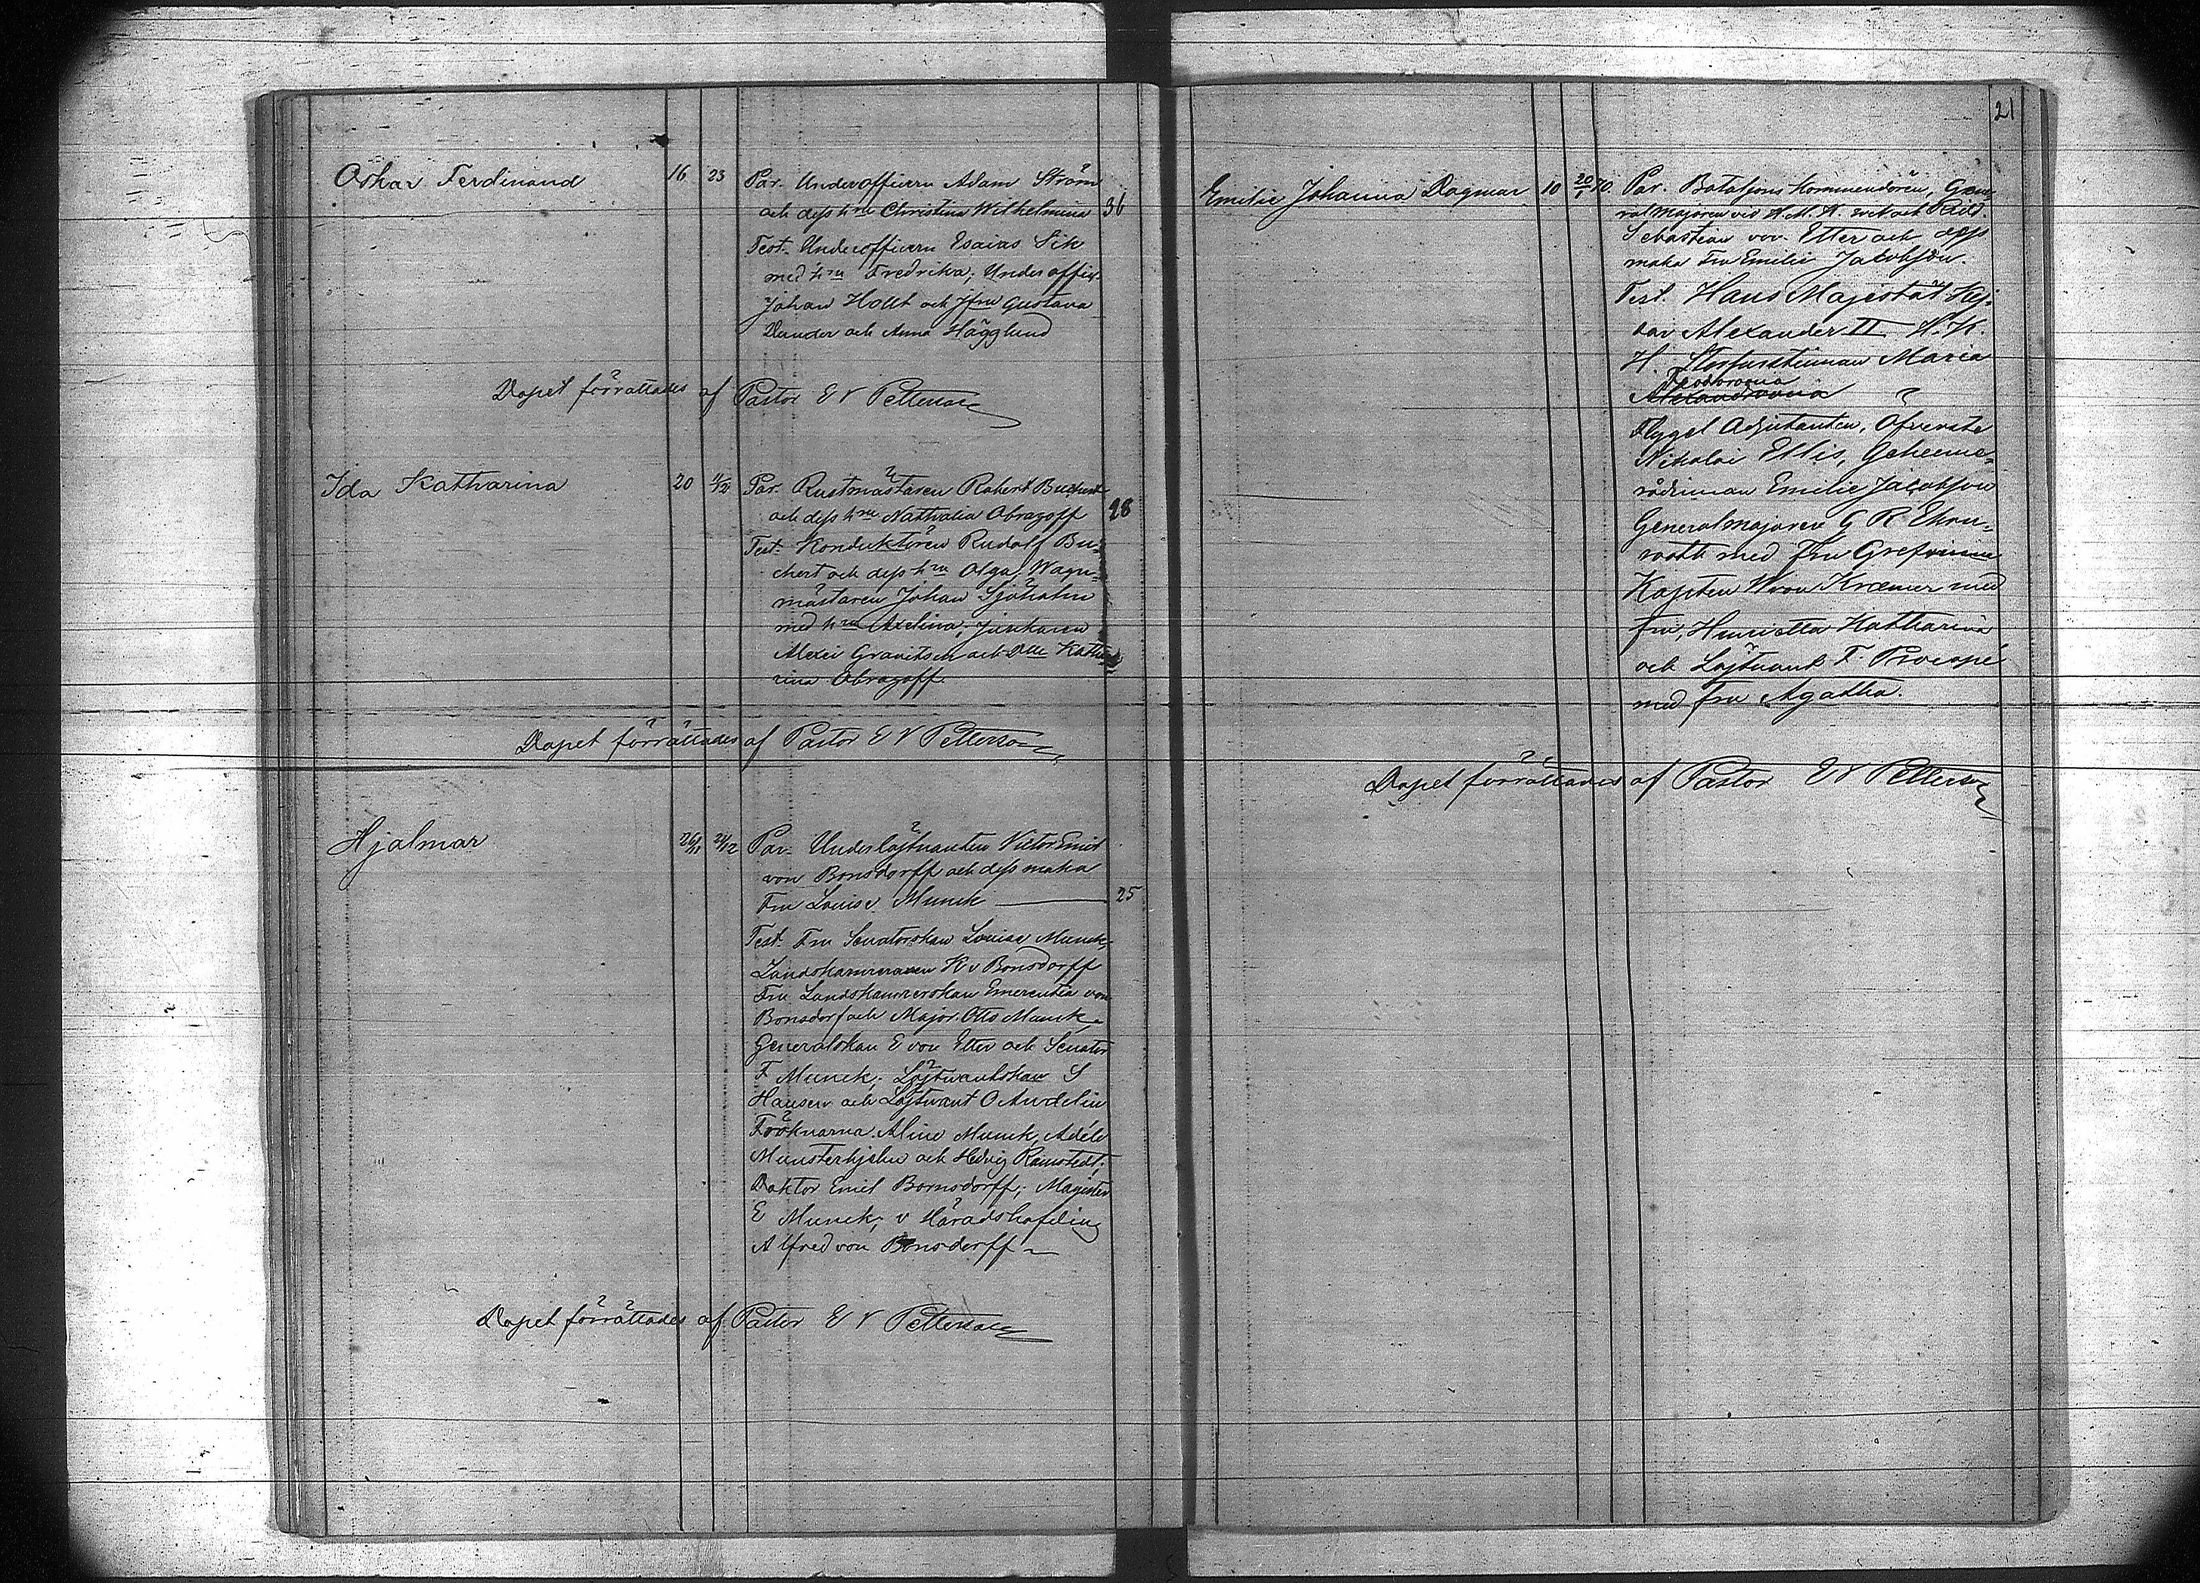 Oskar Ferdinand 16 23 Par. Underofficern Adam Ström
och dess h:ru Christina Wilhelmina 36
Test. Underofficern Esaias Sik
med h:ru Fredrika; Underoffic.
Johan Hollt och Jfru Gustava
Dander och Anna Hägglund
Dopet förrättades af Pastor E V Petterson
Ida Katharina 20 4/12 Par. Rustmästaren Robert Buchert
och dess h:ru Nathalia Obrazoff 28
Test. Konduktören Rudolf Bu-
chert och dess h:ru Olga; Wagn-
mästaren Johan Sjöholm
med h:ru Axelina; Junkaren
Alexei Gravitsen och Dlle Katha-
rina Obrazoff.
Dopet förrättades af Pastor E V Petterson
Hjalmar 26/11 21/12 Par. Underlöjtnanten Victor Emil
von Bonsdorff och dess maka
Fru Louise Munck 25
Test. Fru Senatorskan Louise Munck,
Landskamreraren K v Bonsdorff
Fru Landskamrerskan Emerentia von
Bonsdorf och Major Otto Munck
Generalskan E von Etter och Senator
F Munck; Löjtnantskan S
Hausen och Löjtnant O Aurdelin
Fröknarna Aline Munck, Adéle
Munsterhjelm och Hedvig Ramstedt;
Doktor Emil Bornsdorff; Magister
E Munck; v Häradshöfding
Alfred von Bonsdorff
Dopet förrättades af Pastor E V Petterson
21
Emilie Johanna Dagmar 10 20/1 70. Par. Bataljons Kommendören, Gene-
ralmajoren vid H. M. K. svit och Ridd.
Sebastian von Etter och dess
maka Fru Emilie Jacobson.
Test. Hans Majestät Kej-
sar Alexander II H. K.
H. Storfurstinnan Maria
Feodorovna
Alexandrovna
Flygel Adjutanten, Öfverste
Nikolai Ellis, Geheime-
rådinnan Emilie Jacobson
Generalmajoren G R Ehrn-
rooth med Fru Grefvinna
Kapten W von Kræmer med
fru, Henrietta Katharina
och Löjtnant F. Procopé
med fru Agatha.
Dopet förrättades af Pastor E V Petterson